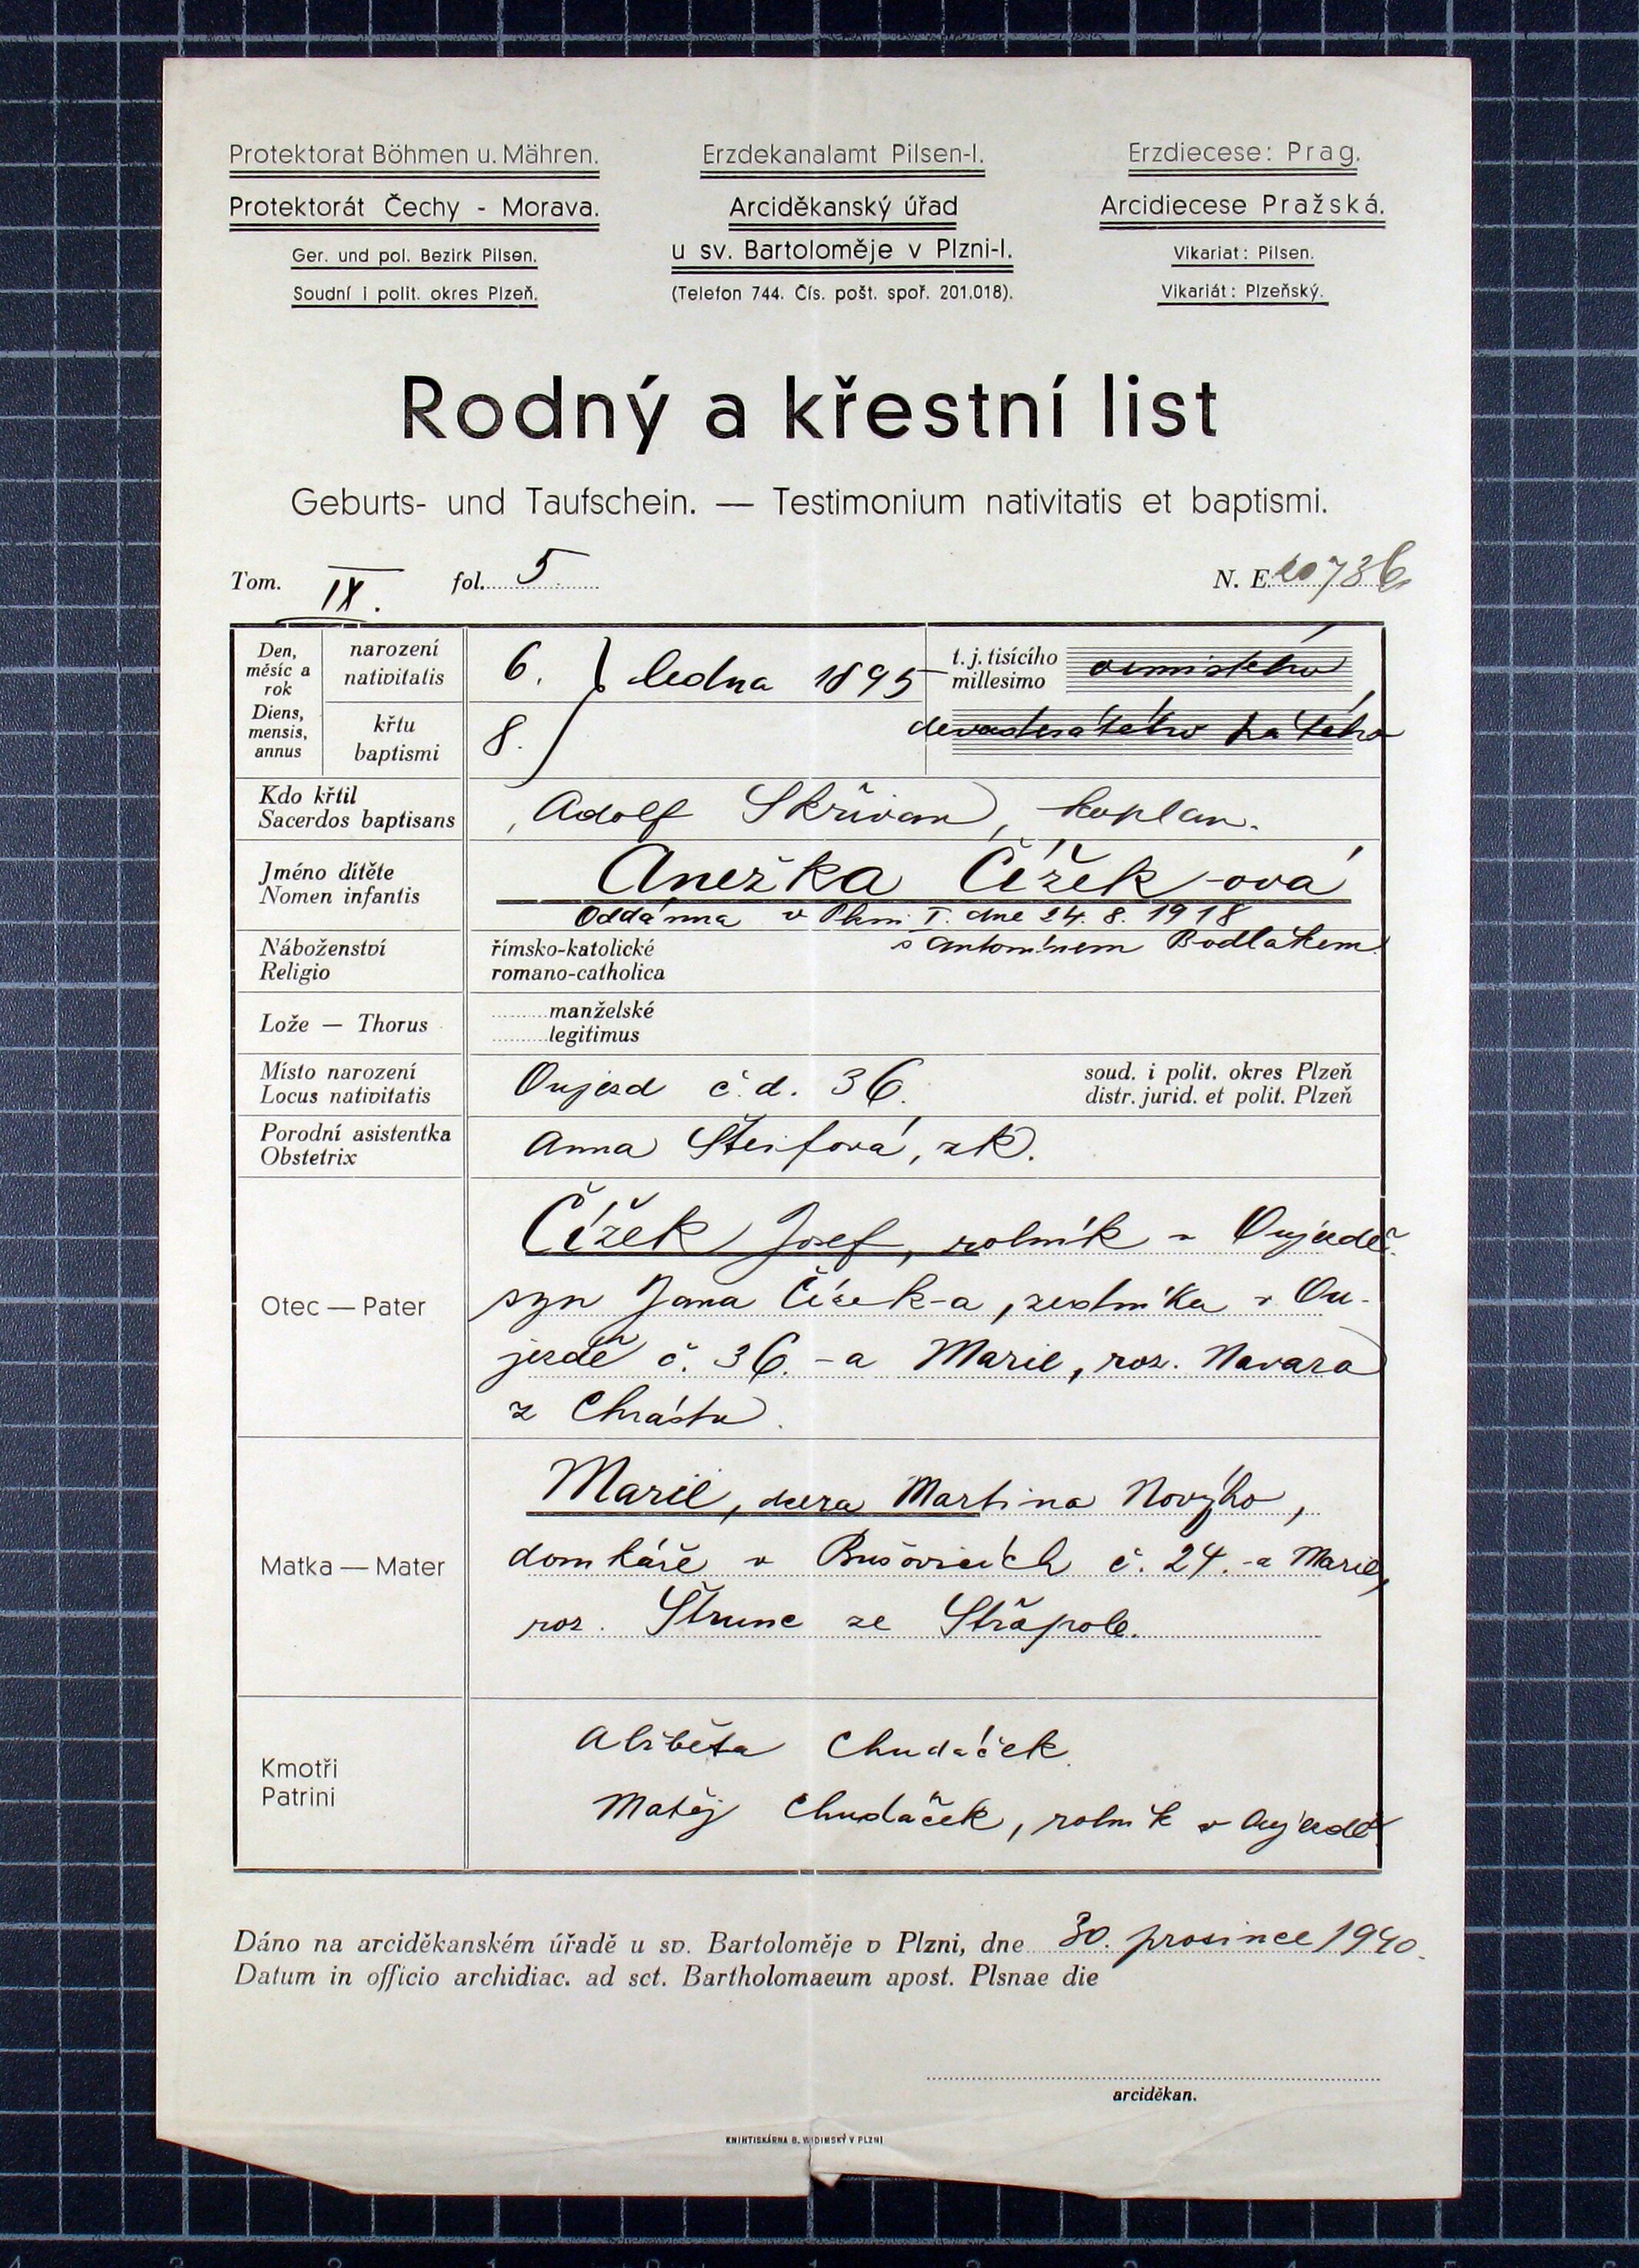 Protektorat Böhmen u. Mähren.
Protektorát Čechy - Morava.
Ger. und pol. Bezirk Pilsen.
Soudní i polit. okres Plzeň.
Erzdekanalamt Pilsen-I.
Arciděkanský úřad
u sv. Bartoloměje v Plzni-I.
(Telefon 744. Čís. pošt. spoř. 201.018).
Erzdiecese: Prag.
Arcidiecese Pražská.
Vikariat: Pilsen.
Vikariát: Plzeňský.
Rodný a křestní list
Geburts- und Taufschein. — Testimonium nativitatis et baptismi.
Tom. IX. fol. 5 N. E. 10736
Den, měsíc a rok
Diens, mensis, annus
narození
nativitatis
6. ledna 1895
t. j. tisícího
millesimo
osmistého
křtu
baptismi
8.
devadesátého pátého
Kdo křtil
Sacerdos baptisans
Adolf Skřivan, kaplan.
Jméno dítěte
Nomen infantis
Anežka Čížek-ová
Oddánna v Plzni I. dne 24. 8. 1918
s Antonínem Bodlákem.
Náboženství
Religio
římsko-katolické
romano-catholica
Lože — Thorus
manželské
legitimus
Místo narození
Locus nativitatis
Oujezd č. d. 36.
soud. i polit. okres Plzeň
distr. jurid. et polit. Plzeň
Porodní asistentka
Obstetrix
Anna Šteifová, zk.
Otec — Pater
Čížek Josef, rolník v Oujezdě.
syn Jana Čížek-a, zedníka v Ou-
jezdě č. 36. - a Marie, roz. Navara
z Chrástu.
Matka — Mater
Marie, dcera Martina Nového,
domkáře v Bušovicích č. 24. - a Marie,
roz. Štrunc ze Střapole.
Kmotři
Patrini
Alžběta Chudáček.
Matěj Chudáček, rolník v Oujezdě.
Dáno na arciděkanském úřadě u sv. Bartoloměje v Plzni, dne 30. prosince 1940.
Datum in officio archidiac. ad sct. Bartholomaeum apost. Plsnae die
arciděkan.
KNIHTISKÁRNA B. WIDIMSKÝ V PLZNI